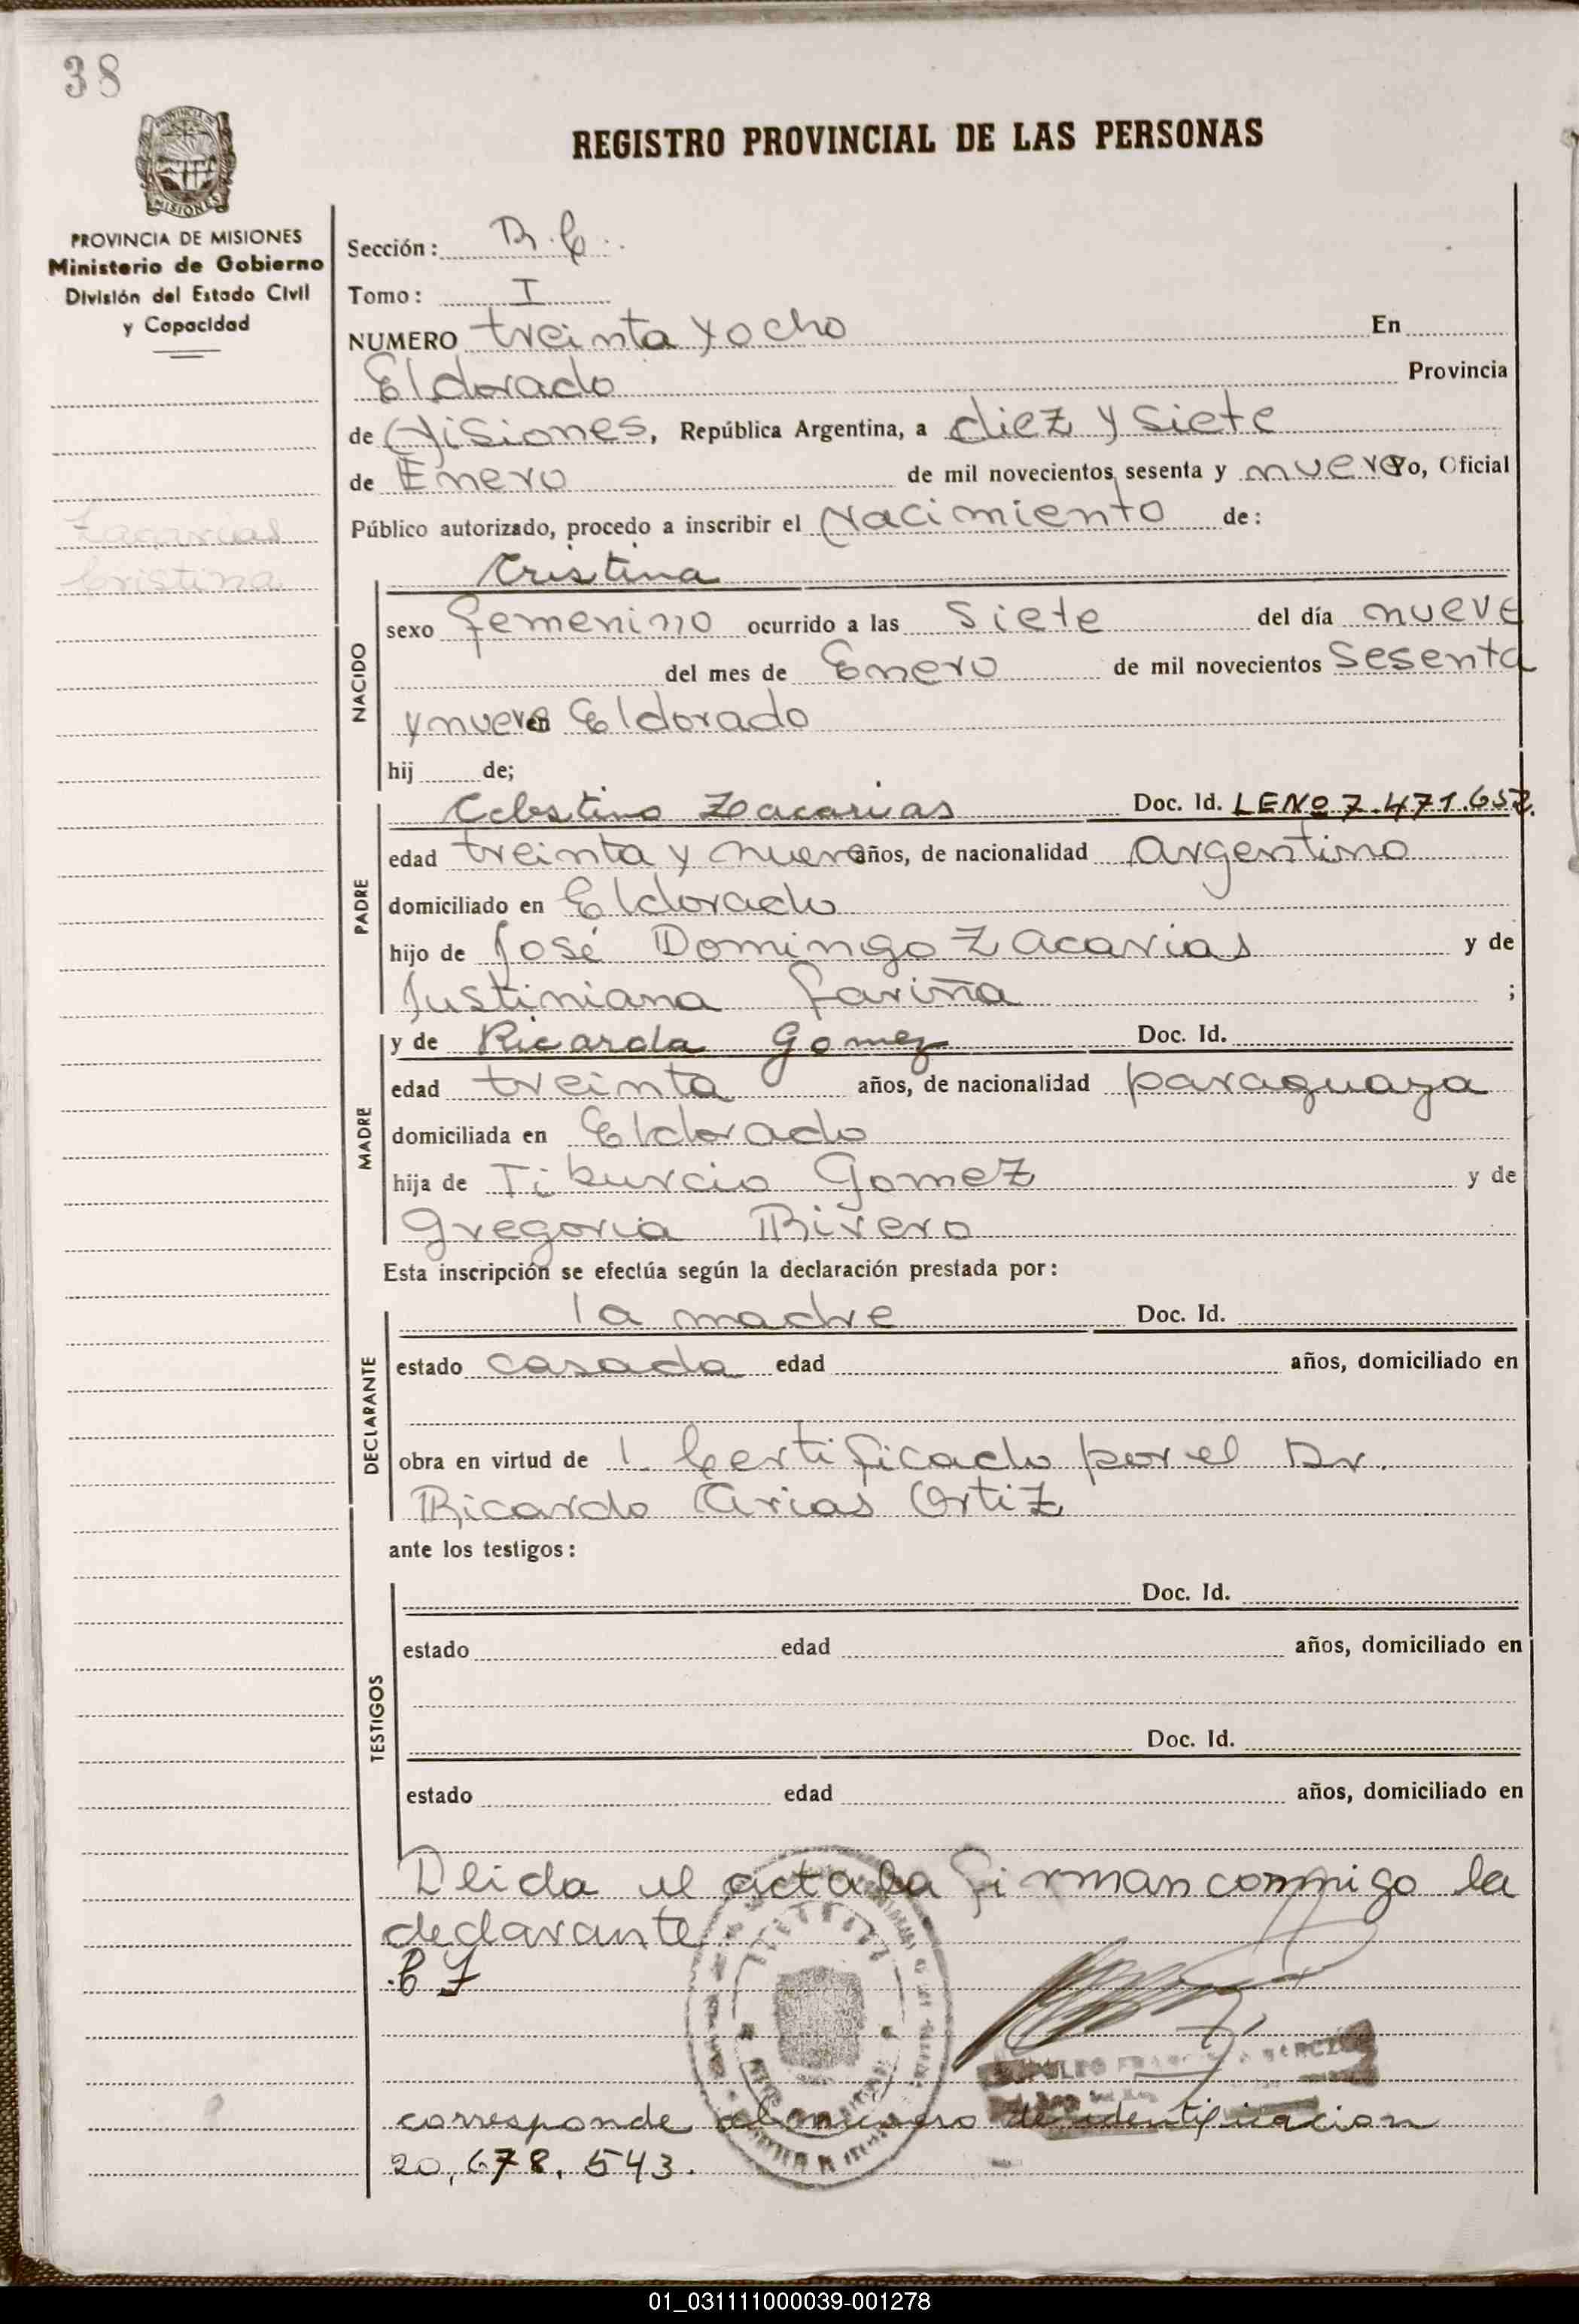 38
REGISTRO PROVINCIAL DE LAS PERSONAS
MISIONES
PROVINCIA DE MISIONES
Ministerio de Gobierno
División del Estado Civil
y Capacidad
Zacarias
Cristina
Sección:
Tomo: I
NUMERO treinta y ocho En
Eldorado Provincia
de Misiones, República Argentina, a diez y siete
de Enero de mil novecientos sesenta y nueve Yo, Oficial
Público autorizado, procedo a inscribir el Nacimiento de:
NACIDO
Cristina
sexo femenino ocurrido a las siete del día nueve
del mes de Enero de mil novecientos sesenta
y nueve en Eldorado
hij de;
PADRE
Celestino Zacarias Doc. Id. LE Nº 7.471.652.
edad treinta y nueve años, de nacionalidad argentino
domiciliado en Eldorado
hijo de José Domingo Zacarias y de
Justiniana Fariña ;
MADRE
y de Ricarda Gomez Doc. Id.
edad treinta años, de nacionalidad paraguaya
domiciliada en Eldorado
hija de Tiburcio Gomez y de
Gregoria Rivero
Esta inscripción se efectúa según la declaración prestada por:
DECLARANTE
la madre Doc. Id.
estado casada edad años, domiciliado en
obra en virtud de 1. Certificado por el Dr.
Ricardo Arias Ortiz
ante los testigos:
TESTIGOS
Doc. Id.
estado edad años, domiciliado en
Doc. Id.
estado edad años, domiciliado en
Dlida el acta la firman conmigo la
declarante
corresponde al numero de identificacion
20.678.543.
01_031111000039-001278